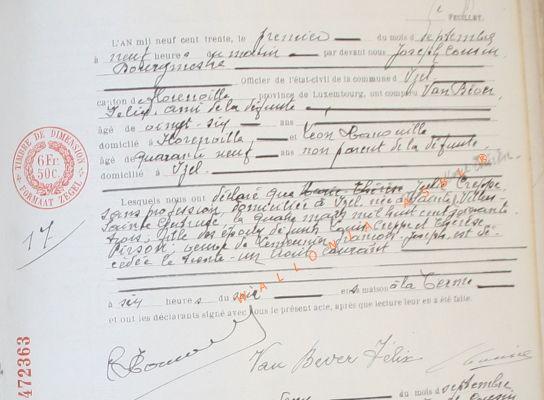 5e FEUILLET.
L'AN mil neuf cent trente, le premier du mois de septembre
à neuf heures du matin par devant nous Joseph Cousin
Bourgmestre
Officier de l'état-civil de la commune d' Izel
canton de Florenville province de Luxembourg, ont comparu Van Bever
Félix, ami de la défunte
âgé de vingt-six ans
domicilié à Florenville et Léon
âgé quarante neuf ans non parent de la défunte
domicilié à Izel.
Lesquels nous ont déclaré que Marie Thérèse Julie Creppe
sans profession domiciliée à Izel, née à Sainte
le quatre mars mil huit cent quarante
trois, fille des époux défunts Louis Creppe et Thérèse
Pierson, veuve de François-Joseph, est dé-
cédée le trente-un août courant
à six heures du soir en sa maison à la Terme
et ont les déclarants signé avec nous le présent acte, après que lecture leur en a été faite.
Van Bever Félix
TIMBRE DE DIMENSION
6 Fr.
50 C.
FORMAAT ZEGEL
17
472363
WALLONIA
du mois de septembre
Cousin